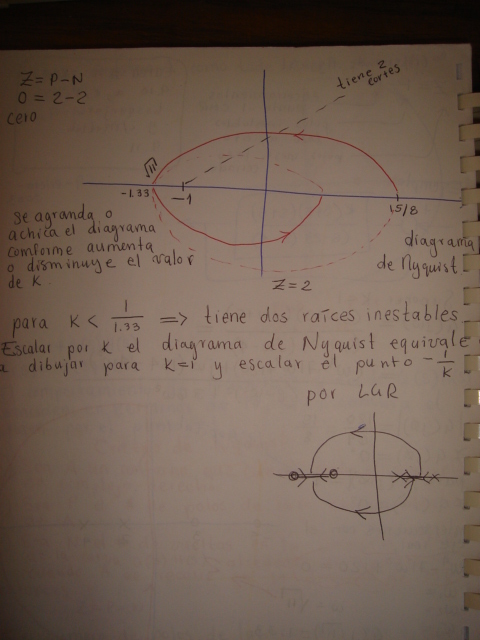 Z = P - N
0 = 2 - 2
cero
tiene 2
cortes
√11
-1.33
-1
15/8
se agranda o
achica el diagrama
comforme aumenta
o disminuye el valor
de K.
diagrama
de Nyquist
Z = 2
para K < 1/1.33 => tiene dos raíces inestables
Escalar por K el diagrama de Nyquist equivale
a dibujar para K=1 y escalar el punto -1/K
por LGR